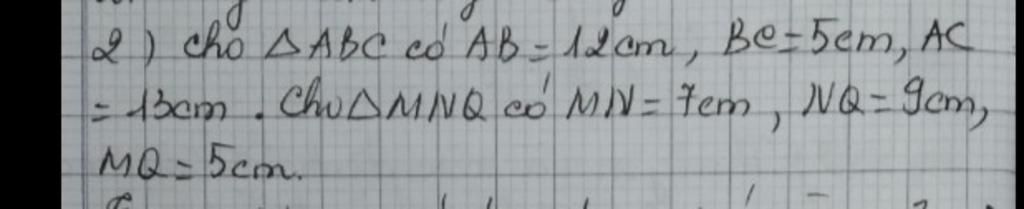 2) cho △ABC có AB = 12cm, BC = 5cm, AC
= 13cm. Cho △MNQ có MN = 7cm, NQ = 9cm,
MQ = 5cm.